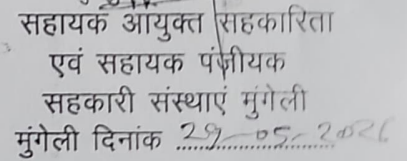 सहायक आयुक्त सहकारिता
एवं सहायक पंजीयक
सहकारी संस्थाएं मुंगेली
मुंगेली दिनांक 29-05-2026